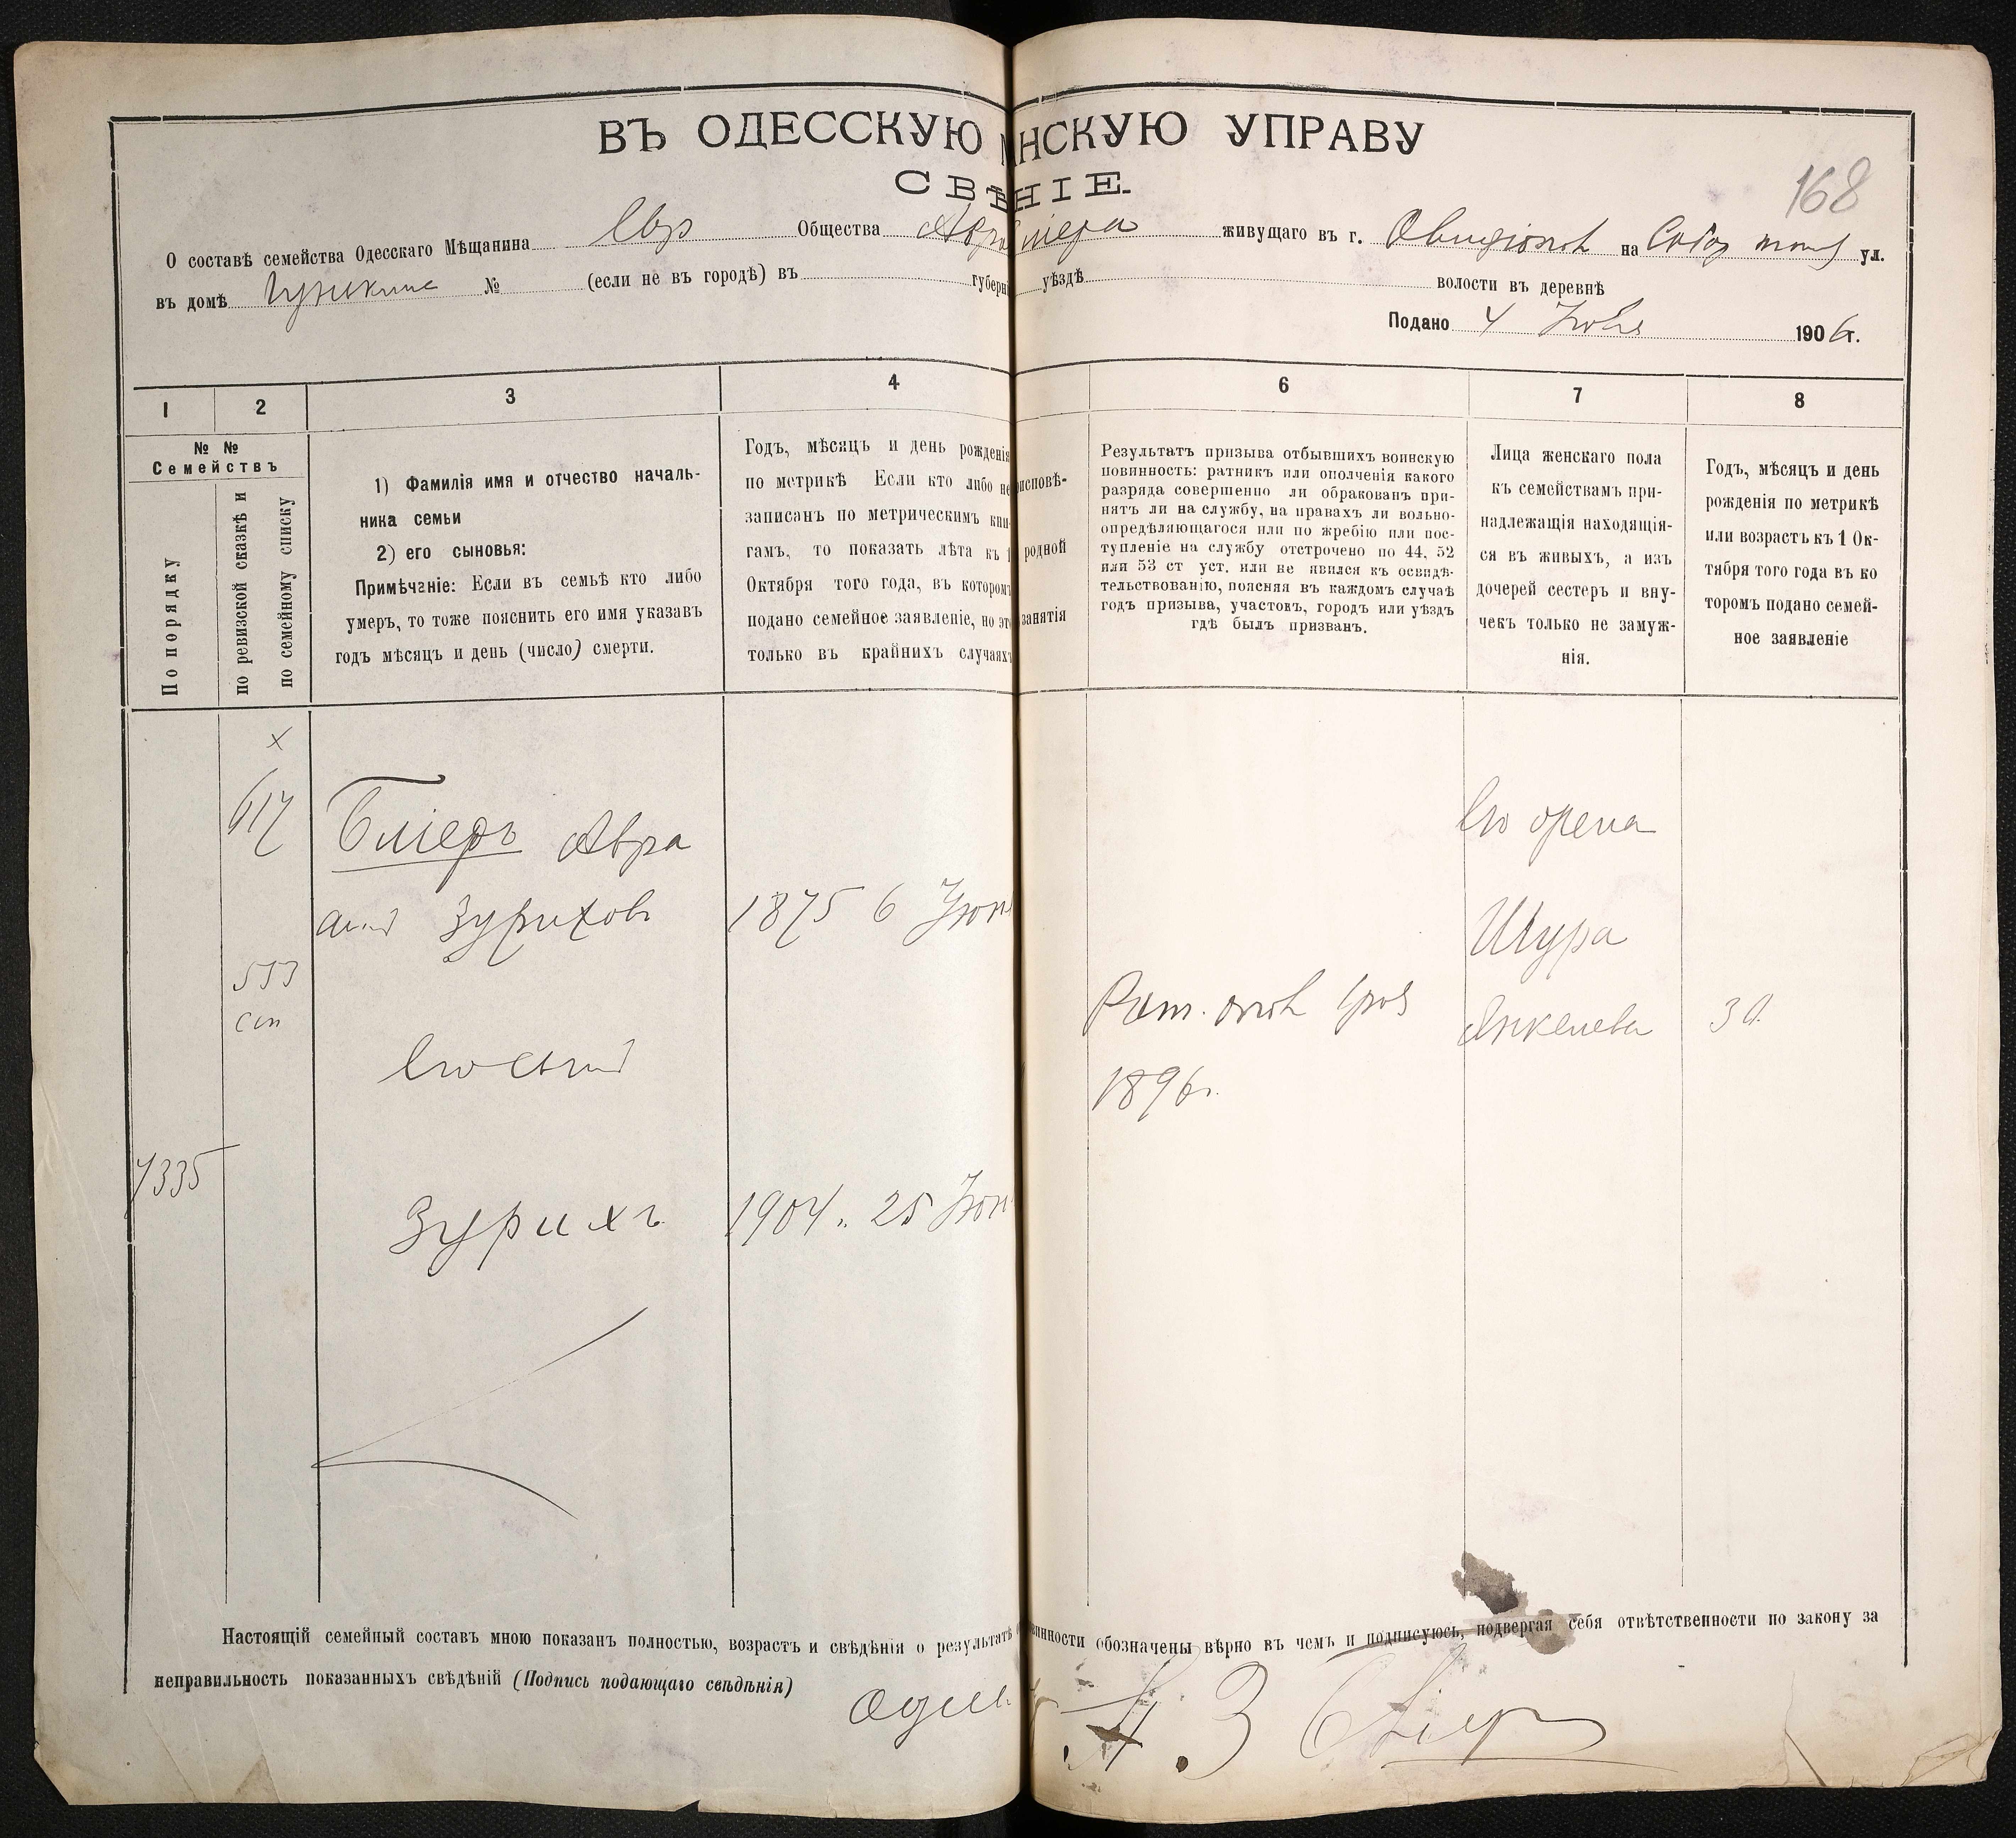 ВЪ ОДЕССКУЮ НСКУЮ УПРАВУ
СВѢНІЕ.
168
О составѣ семейства Одесскаго Мѣщанина Евр Общества живущаго въ г. на ул.
въ домѣ № (если не въ городѣ) въ губерн уѣздѣ волости въ деревнѣ
Подано 4 1906 г.
1 2 3 4 6 7 8
№ №
Семействъ
По порядку
по ревизской сказкѣ и
по семейному списку
1) Фамилія имя и отчество началь-
ника семьи
2) его сыновья:
Примѣчаніе: Если въ семьѣ кто либо
умеръ, то тоже пояснить его имя указавъ
годъ мѣсяцъ и день (число) смерти.
Годъ, мѣсяцъ и день рожденія
по метрикѣ Если кто либо не
записанъ по метрическимъ кни-
гамъ, то показать лѣта къ 1
Октября того года, въ котором
подано семейное заявленіе, но это
только въ крайнихъ случаяхъ
исповѣ-
родной
занятія
Результатъ призыва отбывшихъ воинскую
повинность: ратникъ или ополченія какого
разряда совершенно ли обракованъ при-
нятъ ли на службу, на правахъ ли вольно-
опредѣляющагося или по жребію или пос-
тупленіе на службу отстрочено по 44, 52
или 53 ст уст. или не явился къ освидѣ-
тельствованію, поясняя въ каждомъ случаѣ
годъ призыва, участокъ, городъ или уѣздъ
гдѣ былъ призванъ.
Лица женскаго пола
къ семействамъ при-
надлежащія находящія-
ся въ живыхъ, а изъ
дочерей сестеръ и вну-
чекъ только не замуж-
нія.
Годъ, мѣсяцъ и день
рожденія по метрикѣ
или возрастъ къ 1 Ок-
тября того года въ ко
торомъ подано семей-
ное заявленіе
х
617
Бліеръ Авра
амъ Зуриховъ
1875 6 Іюн
533
сп
Его сынъ
7335
Зурихъ
1904. 25 Іюн
Рат.
1896г.
Его
Шура
Янкелева
30
Настоящій семейный составъ мною показанъ полностью, возрастъ и свѣдѣнія о результатѣ винности обозначены вѣрно въ чемъ и подписуюсь, подвергая себя отвѣтственности по закону за
неправильность показанныхъ свѣдѣній (Подпись подающаго свѣдѣнія)
А. З Бліер